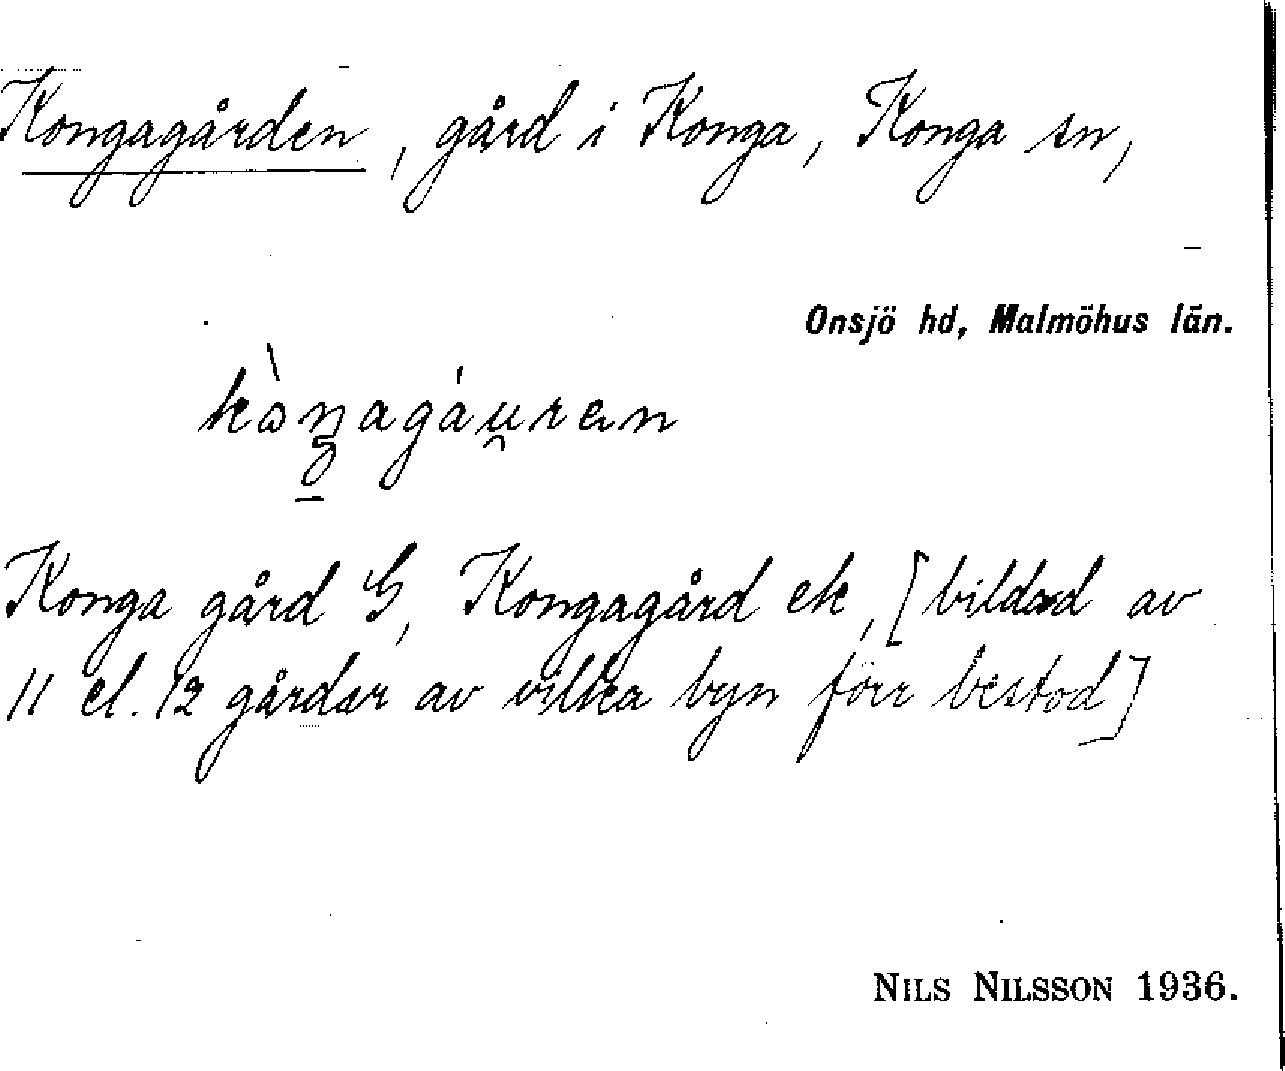 Kongagården, gård i Konga, Konga sn,
Onsjö hd, Malmöhus län.
Konga gård G, Kongagård ek, [bildad av
11 el. 12 gårdar av vilka byn förr bestod]
NILS NILSSON 1936.